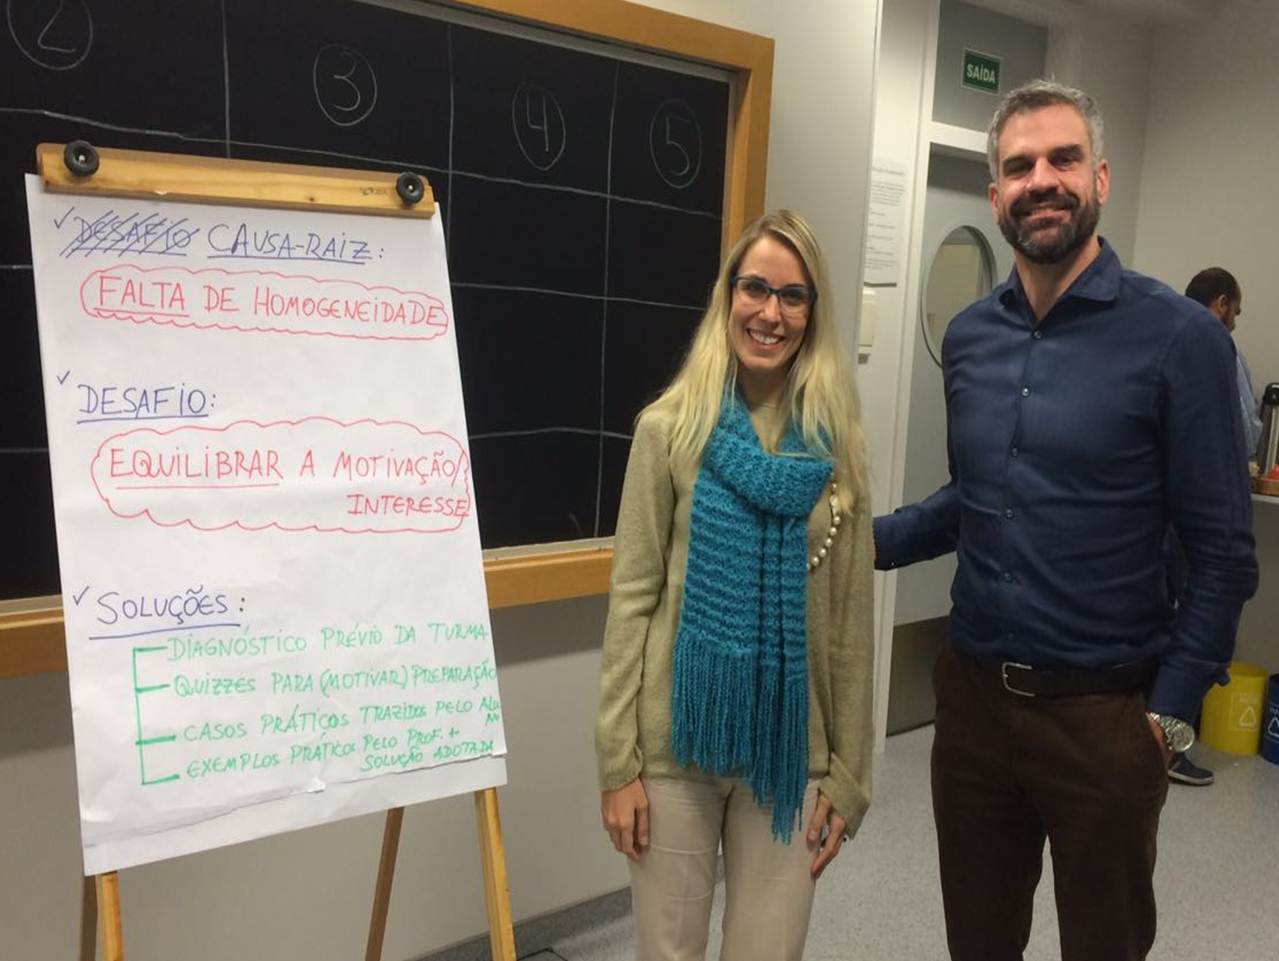 2
3
4
5
SAÍDA
✓ DESAFIO CAUSA-RAIZ:
FALTA DE HOMOGENEIDADE
✓ DESAFIO:
EQUILIBRAR A MOTIVAÇÃO/
INTERESSE
✓ SOLUÇÕES:
DIAGNÓSTICO PRÉVIO DA TURMA
QUIZZES PARA (MOTIVAR) PREPARAÇÃO
CASOS PRÁTICOS TRAZIDOS PELO ALU
NO
EXEMPLOS PRÁTICOS PELO PROF. +
SOLUÇÃO ADOTADA